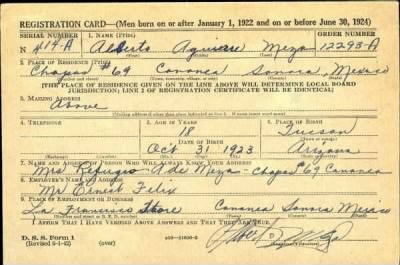 REGISTRATION CARD—(Men born on or after January 1, 1922 and on or before June 30, 1924)
SERIAL NUMBER 1. NAME (Print) ORDER NUMBER
N 14-A Alberto Aguirre Meza 12293-A
2. PLACE OF RESIDENCE (Print)
Chapos #69 Cananea Sonora, Mexico
[THE PLACE OF RESIDENCE GIVEN ON THE LINE ABOVE WILL DETERMINE LOCAL BOARD
JURISDICTION; LINE 2 OF REGISTRATION CERTIFICATE WILL BE IDENTICAL]
3. MAILING ADDRESS
Above
4. TELEPHONE 5. AGE IN YEARS 6. PLACE OF BIRTH
18 Tucson
DATE OF BIRTH
Oct 31 1923 Arizona
7. NAME AND ADDRESS OF PERSON WHO WILL ALWAYS KNOW YOUR ADDRESS
Mrs Refugio A de Meza - Chapos 69 Cananea
8. EMPLOYER'S NAME AND ADDRESS
Mr Ernest Felix
9. PLACE OF EMPLOYMENT OR BUSINESS
La Francisco Store Cananea Sonora Mexico
I AFFIRM THAT I HAVE VERIFIED ABOVE ANSWERS AND THAT THEY ARE TRUE.
D. S. S. Form 1
(Revised 6-1-42) (over)